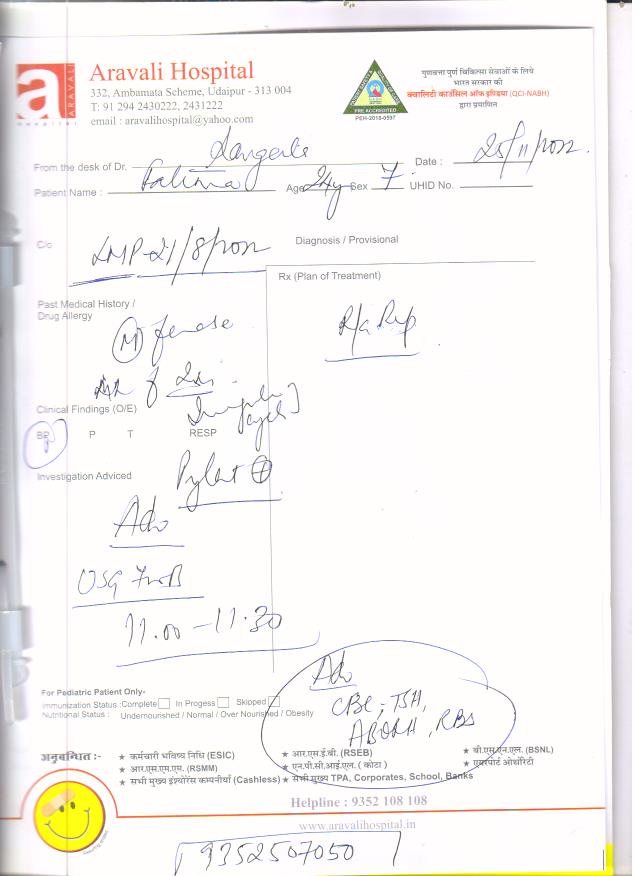 a
ARAVALI
Hospital
Aravali Hospital
332, Ambamata Scheme, Udaipur - 313 004
T: 91 294 2430222, 2431222
email : aravalihospital@yahoo.com
PRE ACCREDITED
PEH-2018-0597
गुणवत्ता पुर्ण चिकित्सा सेवाओं के लिये
भारत सरकार की
क्वालिटी काउंसिल ऑफ इण्डिया (QCI-NABH)
द्वारा प्रमाणित
From the desk of Dr. Sangeeta Date : 25/11/2022.
Patient Name : Fatima Age 24y Sex F UHID No.
C/o LMP-21/8/2022 Diagnosis / Provisional
Rx (Plan of Treatment)
Past Medical History /
Drug Allergy
(M)
Clinical Findings (O/E)
BP P T RESP
Investigation Adviced
⊕
Adv
USG
11.00-11.30
Adv
CBC, TSH,
ABORH, RBS
For Pediatric Patient Only-
Immunization Status :Complete In Progess Skipped
Nutritional Status : Undernourished / Normal / Over Nourished / Obesity
अनुबन्धित :- ★ कर्मचारी भविष्य निधि (ESIC) ★ आर.एस.ई.बी. (RSEB) ★ बी.एस.एन.एल. (BSNL)
★ आर.एस.एम.एम. (RSMM) ★ एन.पी.सी.आई.एल. ( कोटा ) ★ एयरपोर्ट ऑथोरिटी
★ सभी मुख्य इंश्योरेंस कम्पनीयाँ (Cashless) ★ सभी मुख्य TPA, Corporates, School, Banks
Helpline : 9352 108 108
www.aravalihospital.in
9352507050